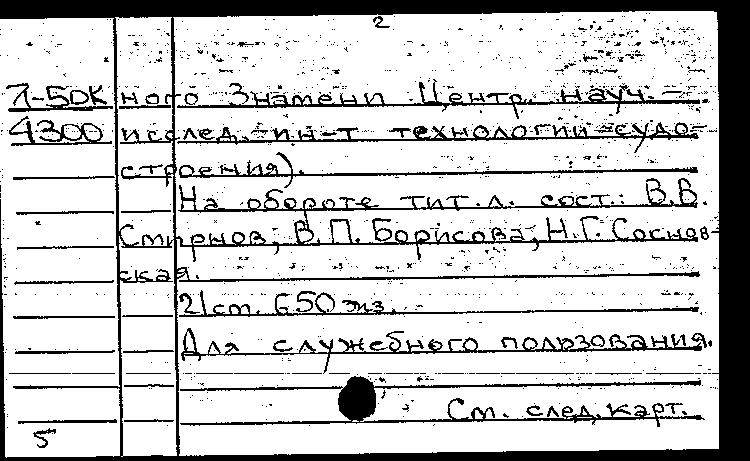 2
Л-5DK ного Знамени Центр. науч.-
4300 исслед. ин-т технологии судо-
строения).
На обороте тит. л. сост.: В.В.
Смирнов, В.П. Борисова, Н.Г. Соснов-
ская.
21 ст. 650 экз.
Для служебного пользования.
См. след. карт.
5